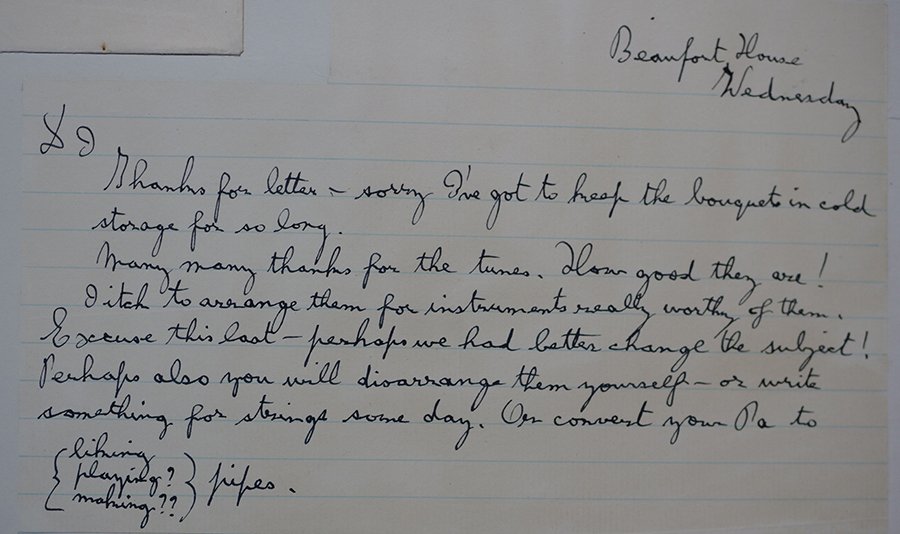 Beaufort House
Wednesday
D J
Thanks for letter – sorry I've got to keep the bouquets in cold
storage for so long.
Many many thanks for the tunes. How good they are!
I itch to arrange them for instruments really worthy of them.
Excuse this last – perhaps we had better change the subject!
Perhaps also you will disarrange them yourself – or write
something for strings some day. Or convert your Pa to
liking
playing?
making??
pipes.